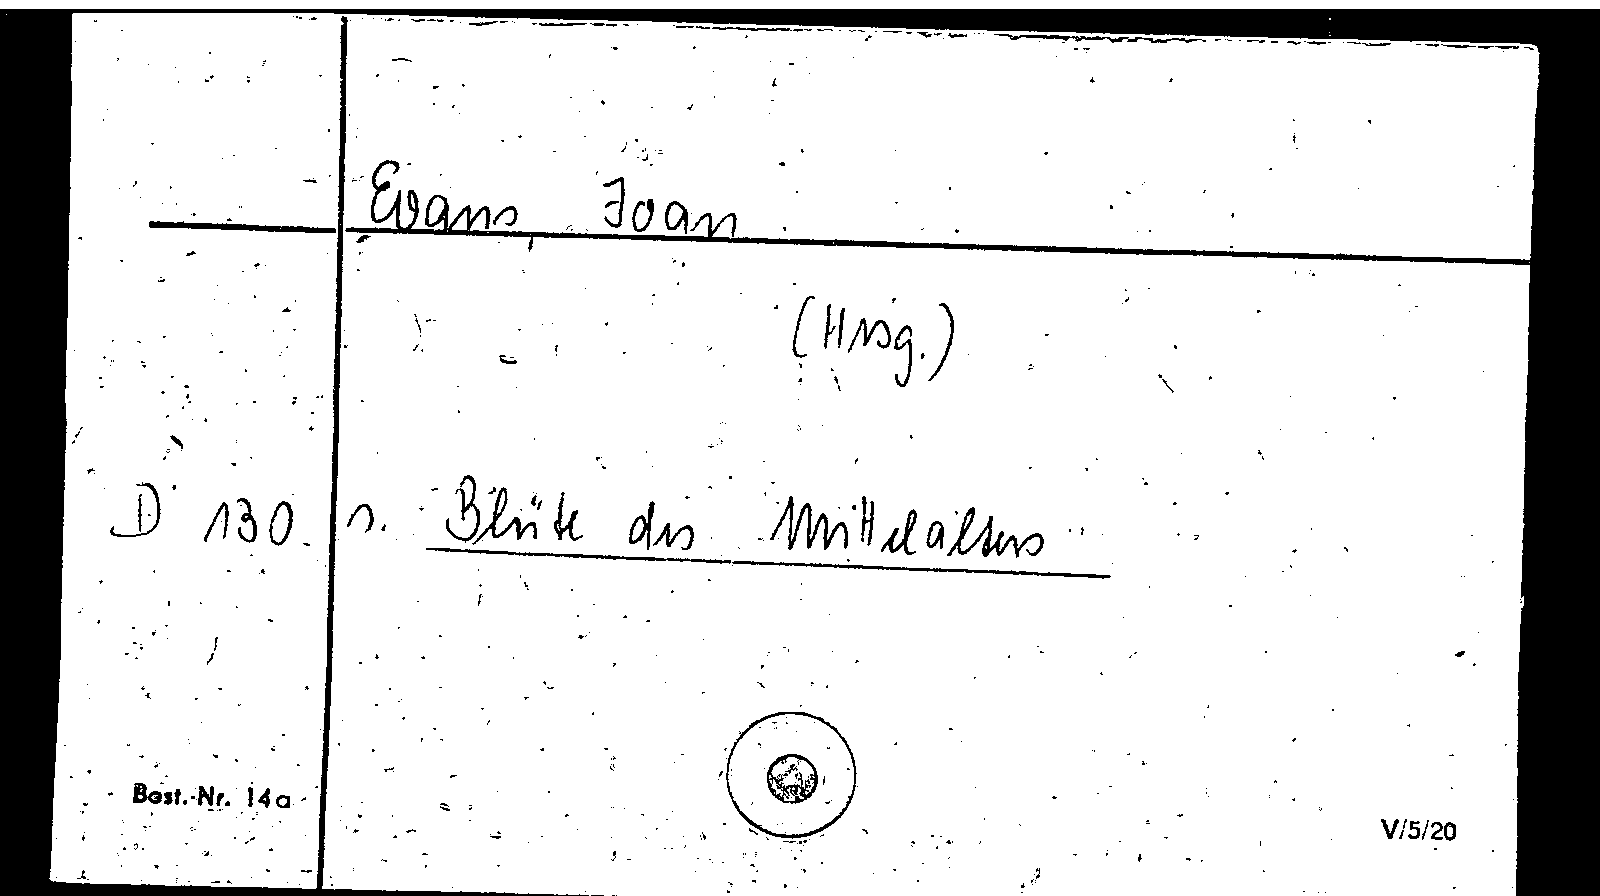 Evans, Joan
(Hrsg.)
D 130 s. Blüte des Mittelalters
Best.-Nr. 14a
V/5/20